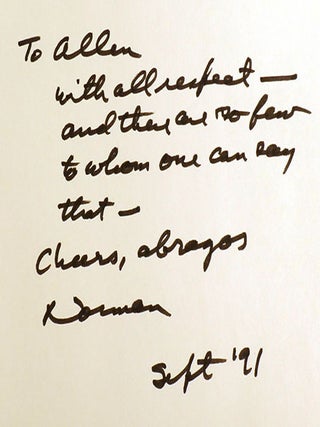 To Allen
with all respect —
and they are so few
to whom one can say
that —
Cheers, abrazos
Norman
Sept '91